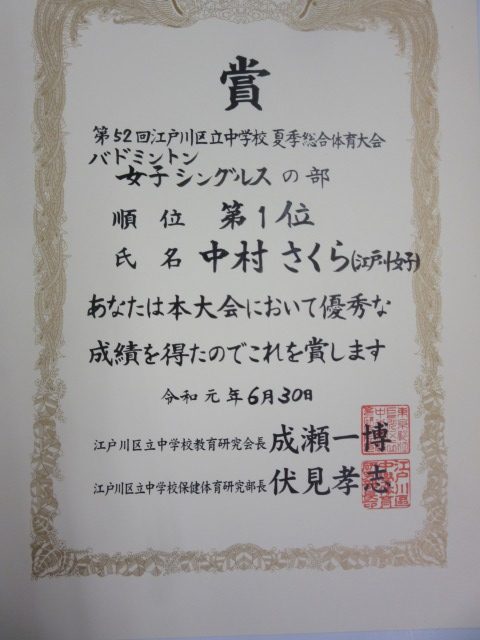 賞
第52回江戸川区立中学校夏季総合体育大会
バドミントン
女子シングルスの部
順位 第1位
氏名 中村さくら(江戸川女子)
あなたは本大会において優秀な
成績を得たのでこれを賞します
令和元年6月30日
江戸川区立中学校教育研究会長 成瀬一博
江戸川区立中学校保健体育研究部長 伏見孝志